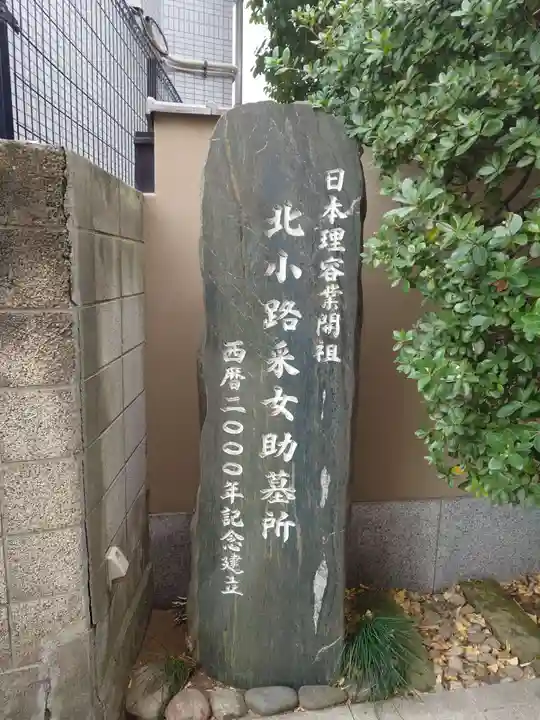 日本理容業開祖
北小路采女助墓所
西暦二〇〇〇年記念建立